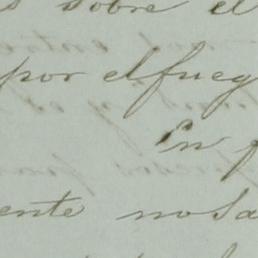 sobre el
por el fueg
En
ente no sa